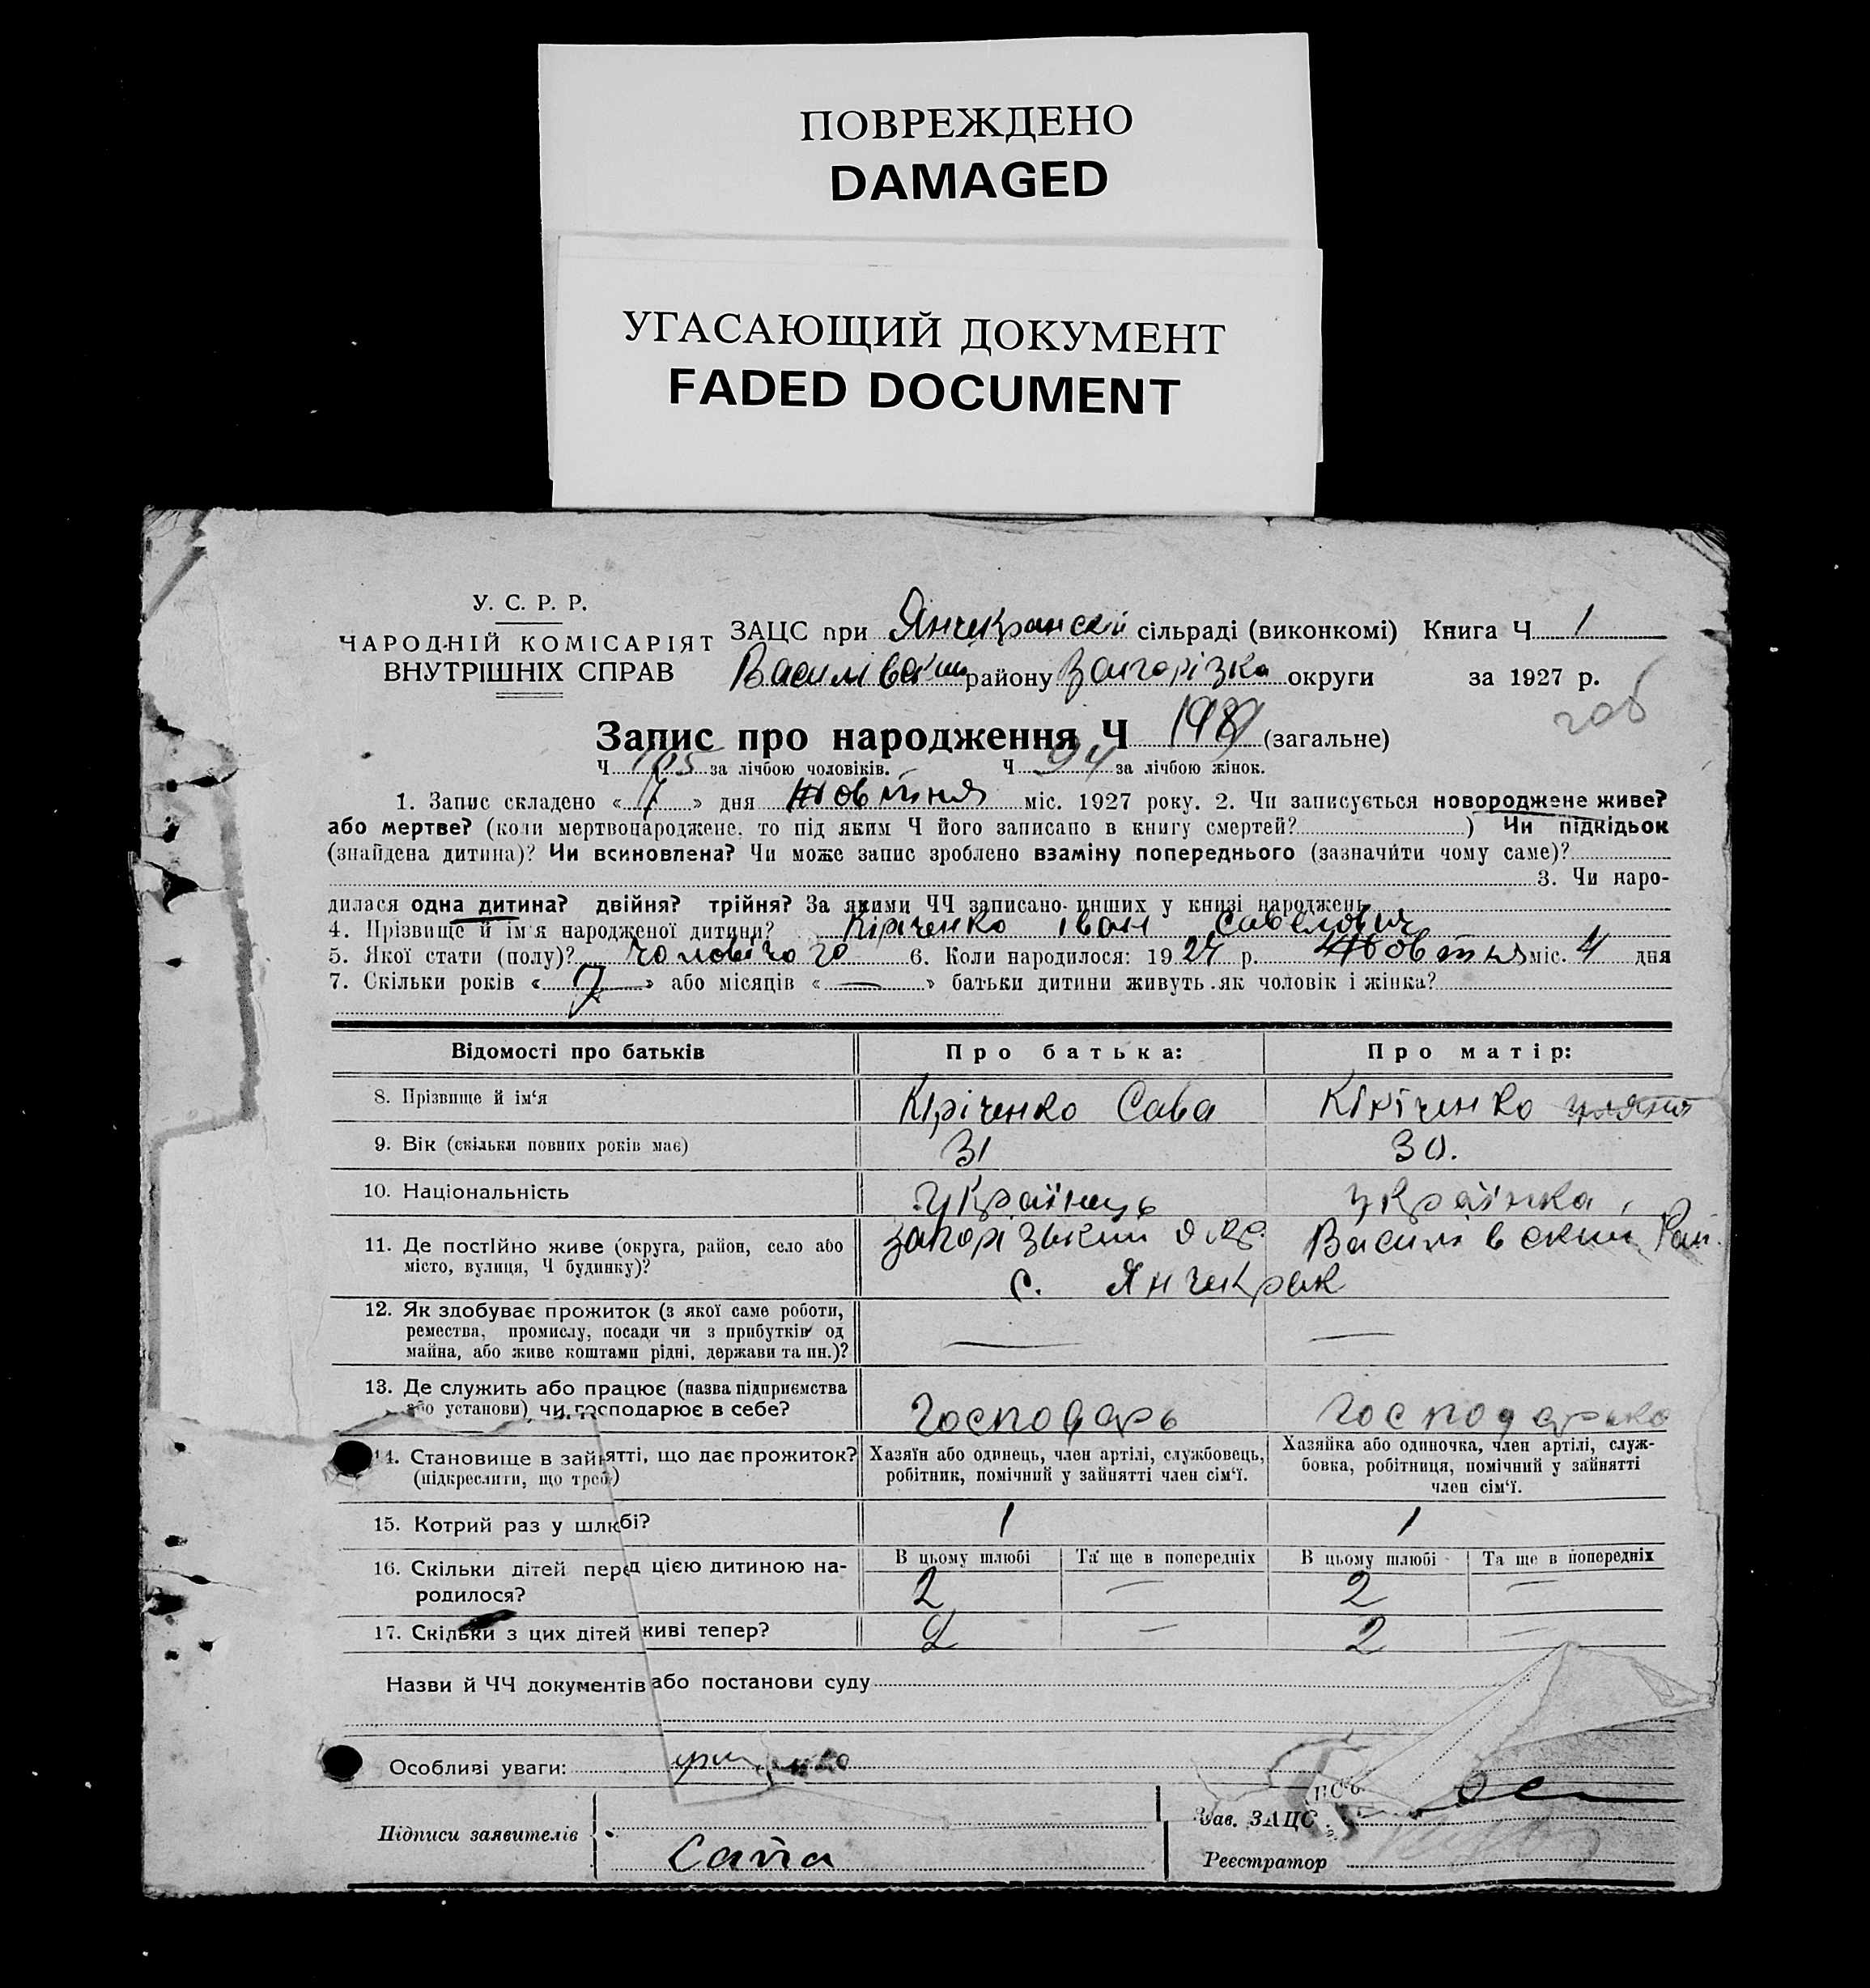 ПОВРЕЖДЕНО
DAMAGED
УГАСАЮЩИЙ ДОКУМЕНТ
FADED DOCUMENT
У. С. Р. Р.
ЧАРОДНІЙ КОМІСАРІЯТ
ВНУТРІШНІХ СПРАВ
ЗАЦС при Янчекранскій сільраді (виконкомі) Книга Ч 1
району округи за 1927 р.
Запис про народження Ч (загальне)
Ч 105 за лічбою чоловіків. Ч 94 за лічбою жінок.
1. Запис складено « 7 » дня Жовтня міс. 1927 року. 2. Чи записується новороджене живе?
або мертве? (коли мертвонароджене, то під яким Ч його записано в книгу смертей? ) Чи підкідьок
(знайдена дитина)? Чи всиновлена? Чи може запис зроблено взаміну попереднього (зазначити чому саме)?
3. Чи наро-
дилася одна дитина? двійня? трійня? За якими ЧЧ записано инших у книзі народжень
4. Прізвище й ім'я народженої дитини? Кіріченко Іван Савелович
5. Якої стати (полу)? чоловічого 6. Коли народилося: 1927 р. Жовтня міс. 4 дня
7. Скільки років « 7 » або місяців « — » батьки дитини живуть як чоловік і жінка?
Відомості про батьків Про батька: Про матір:
8. Прізвище й ім'я Кіріченко Сава Кіріченко
9. Вік (скільки повних років має) 31 30.
10. Національність Українець Українка
11. Де постійно живе (округа, район, село або місто, вулиця, Ч будинку)? Запорізький окр. Василівский Рай.
с. Янчекрак
12. Як здобуває прожиток (з якої саме роботи,
ремества, промислу, посади чи з прибутків од
майна, або живе коштами рідні, держави та ин.)? — —
13. Де служить або працює (назва підприємства
або установи) чи господарює в себе? Господарь господарька
14. Становище в зайнятті, що дає прожиток? Хазяїн або одинець, член артілі, службовець, Хазяйка або одиночка, член артілі, служ-
(підкреслити, що треб) робітник, помічний у зайнятті член сім'ї. бовка, робітниця, помічний у зайнятті
член сім'ї.
15. Котрий раз у шлюбі? 1 1
16. Скільки дітей перед цією дитиною на- В цьому шлюбі Та ще в попередніх В цьому шлюбі Та ще в попередніх
родилося? 2 — 2 —
17. Скільки з цих дітей живі тепер? 2 — 2 —
Назви й ЧЧ документів або постанови суду
Особливі уваги:
Зав. ЗАЦС
Підписи заявителів
Реєстратор